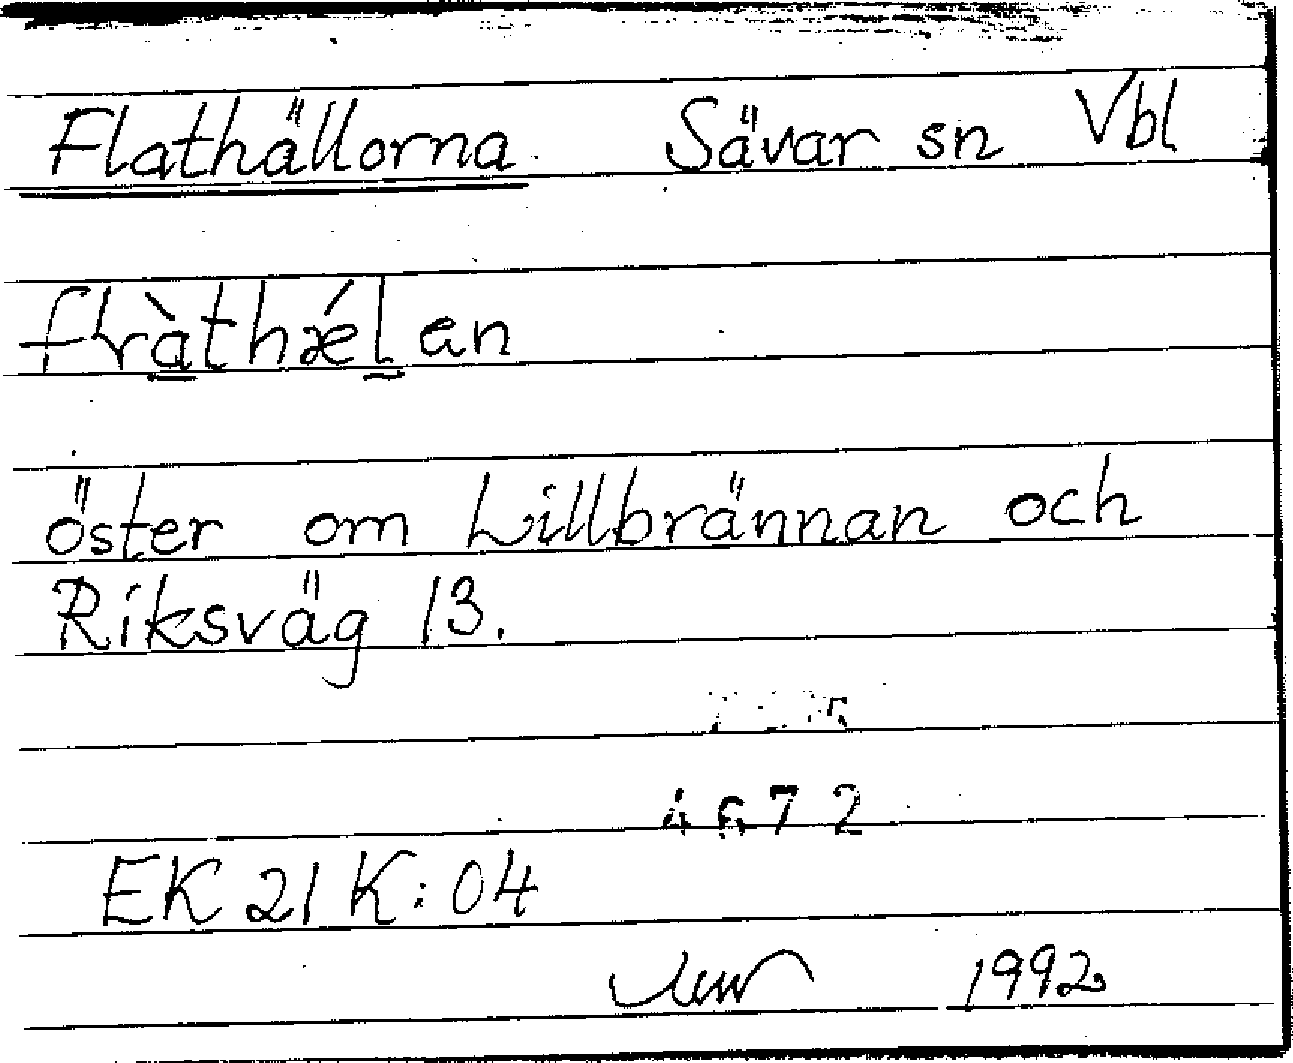 Flathällorna Sävar sn Vbl
öster om Lillbrännan och
Riksväg 13.
4672
EK 21 K:04
1992